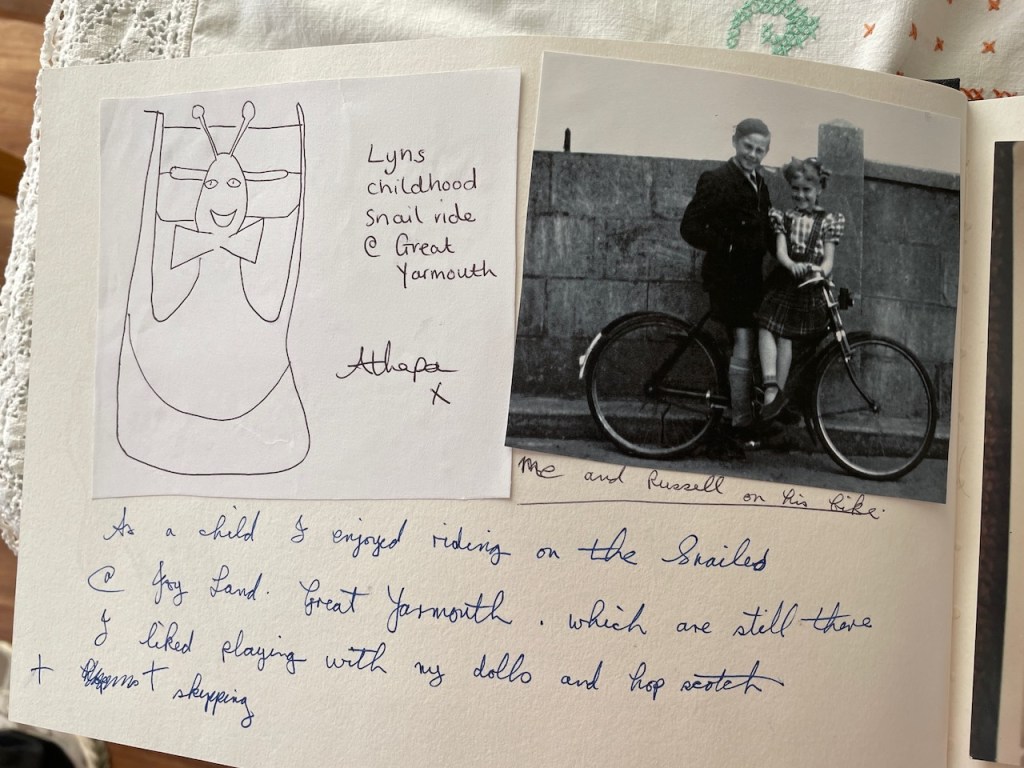 Lyns
childhood
Snail ride
@ Great
Yarmouth
X
Me and Russell on his bike.
As a child I enjoyed riding on the Snailes
@ Joy Land. Great Yarmouth. which are still there
I liked playing with my dolls and hop scotch
+ skipping